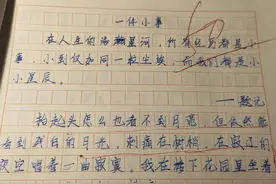 一件小事
在人生的浩瀚星河,所有经历都是小
事,小到仅如同一粒尘埃,而我们都是小
小星辰。
——题记
抬起头怎么也看不到月亮,但依然能
看到我白的月光,刺痛在树梢,在寂辽的
夜空唱着一曲寂寞。我在楼下花园里坐着